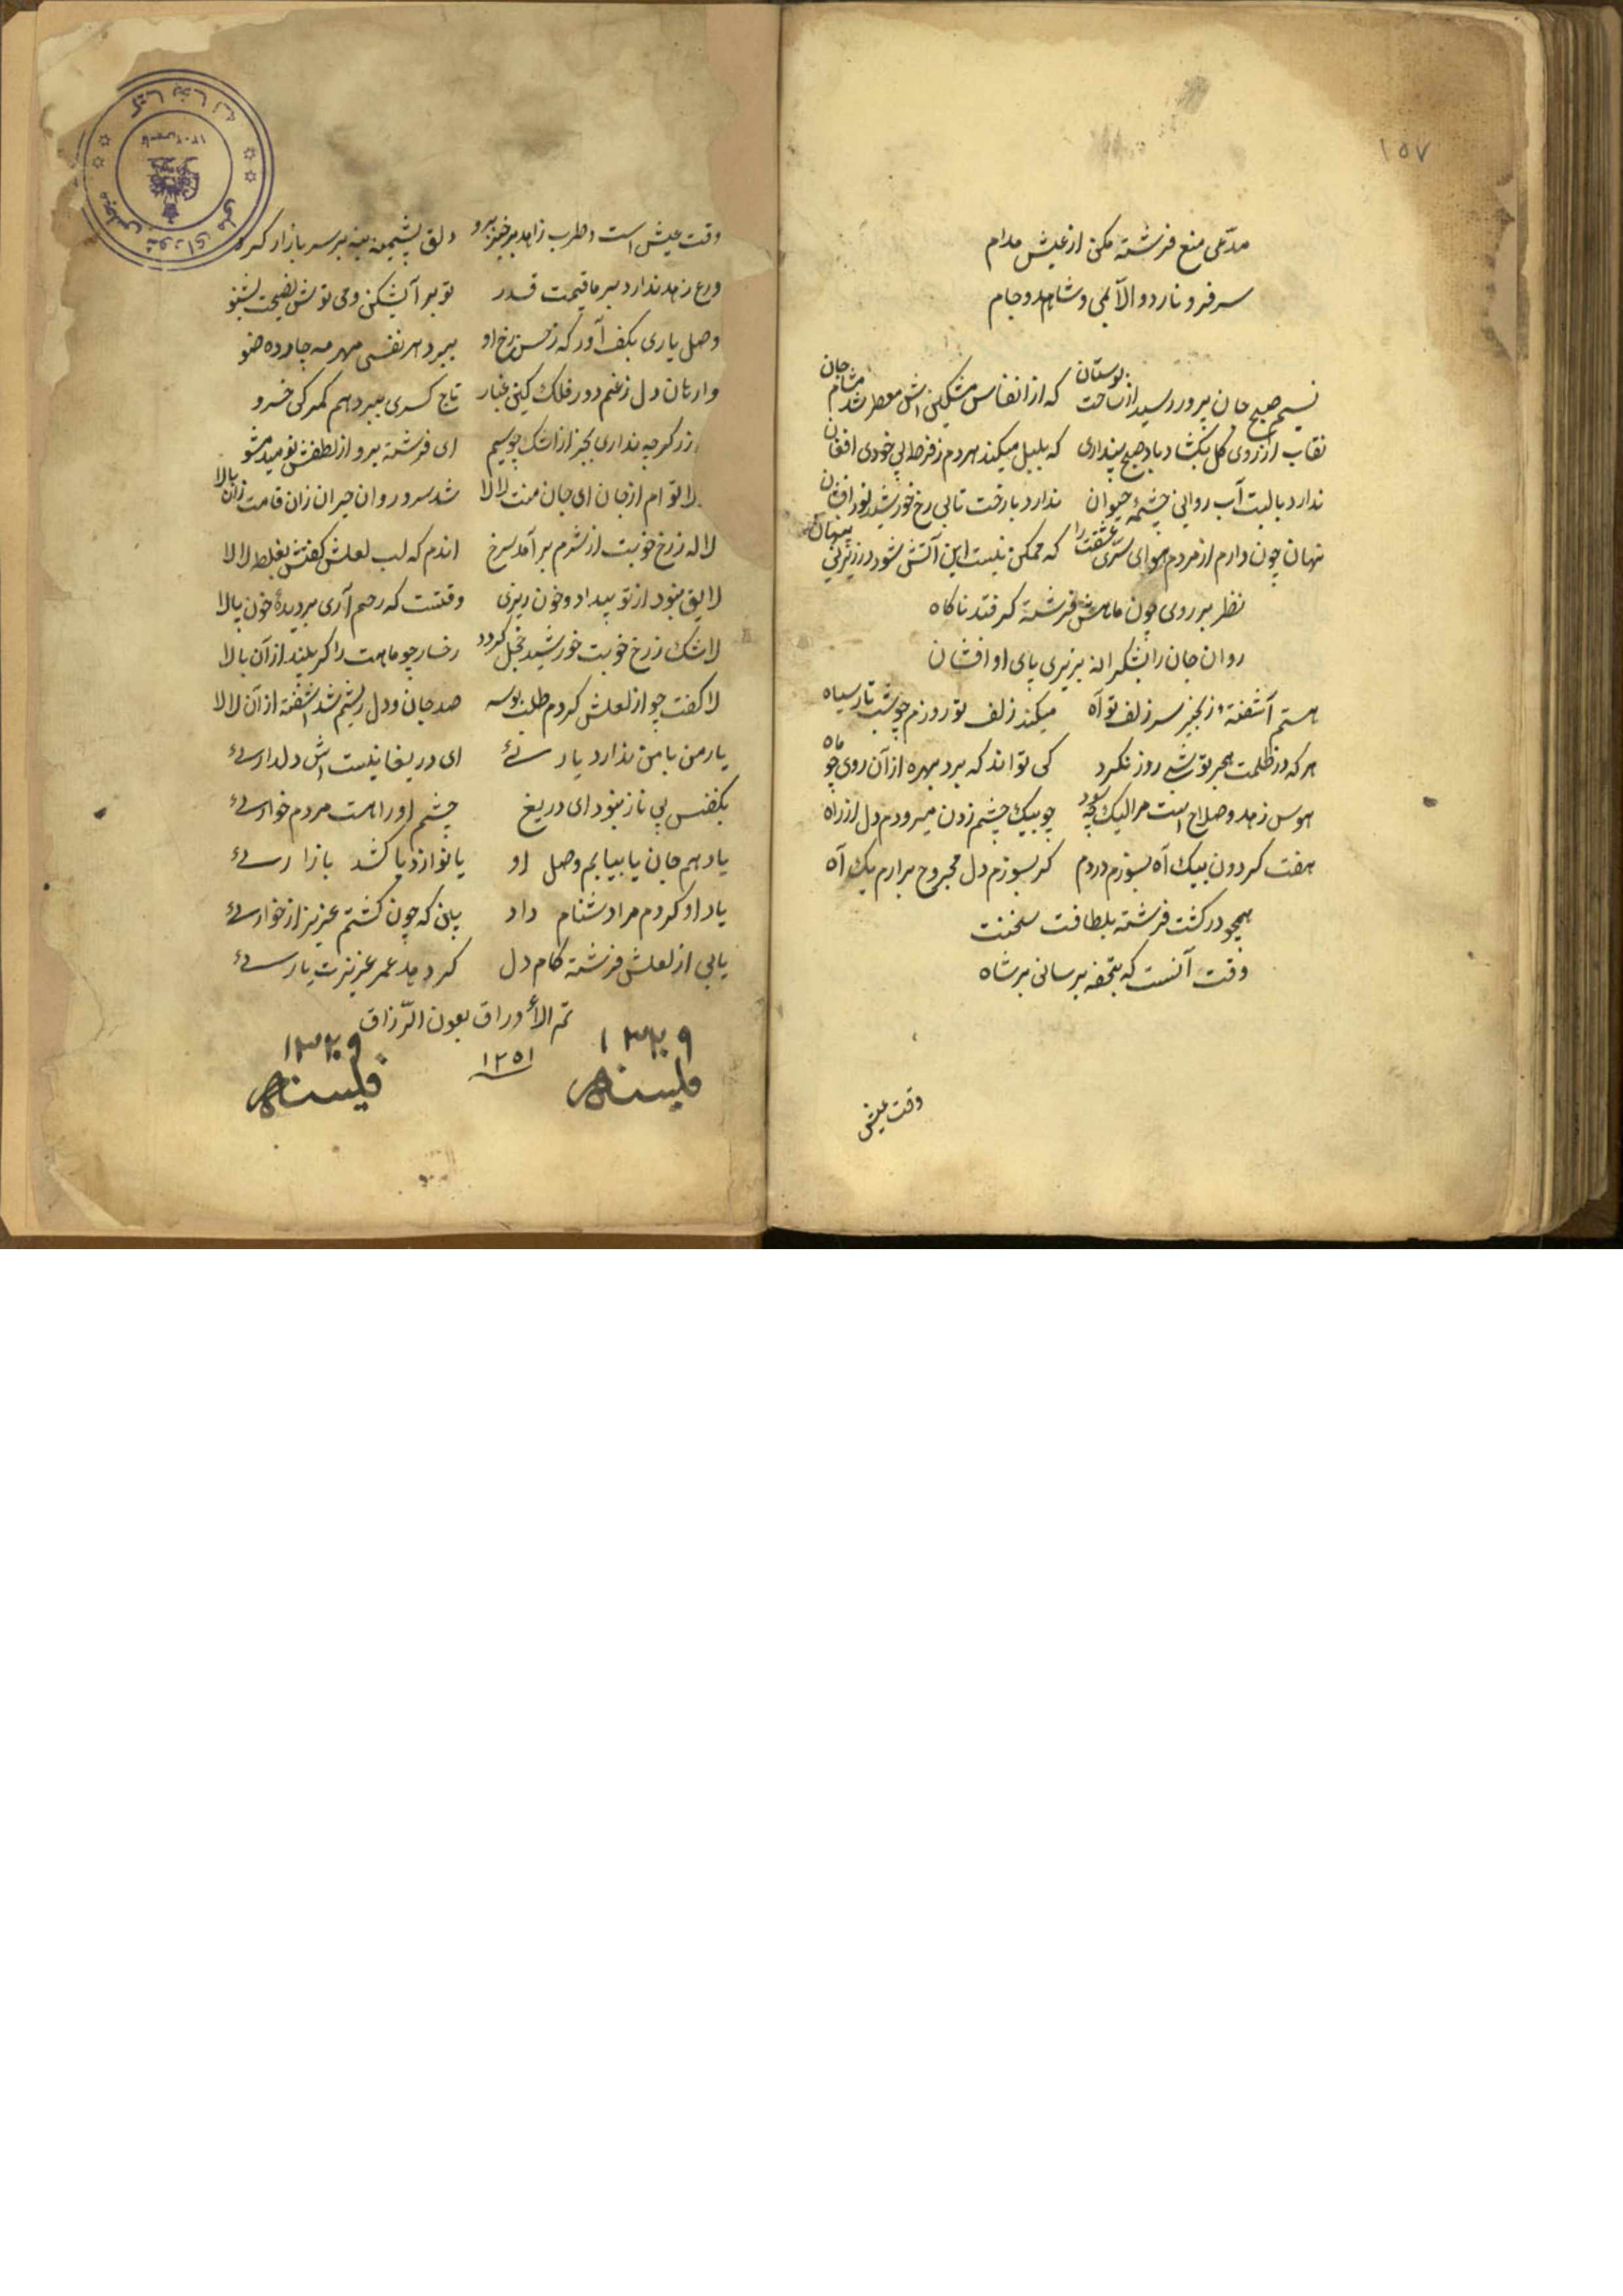 ۱۵۷
مدّعی منع فرشته مکن از عیش مدام
سر فرو نارد والا بمی و شاهد و جام
نسیم صبح جان پرور رسید از ساحت بوستان که از انفاس مشکین اش معطر شد مشام جان
نقاب از روی گل بکشاد باد صبح پنداری که بلبل میکند هردم ز فرط بیخودی افغان
ندارد با لبت آب روانی چشمهٔ حیوان ندارد با رخت تابی رخ خورشید نور افشان
نهان چون دارم از مردم هوای سرّ عشقت را که ممکن نیست این آتش شود در زیر نی پنهان
نظر بر روی چون ماهش فرشته گر فتد ناکاه
روان جان را بشکرانه بزیری پای او افشان
هستم آشفتهٔ زنجیر سر زلف تو آه میکند زلف تو روزم چو شب تار سیاه
هر که در ظلمت هجر تو شبی روز نکرد کی تواند که برد بهره از آن روی چو ماه
هوس زهد و صلاح است مرا لیک چه سود چو بیک چشم زدن میرودم دل از راه
هفت کردون بیک آه بسوزم در دم کر بسوزم دل مجروح برارم یک آه
همچو در کشت فرشته بلطافت سخنت
وقت آنست که بتحفه برسانی بر شاه
وقت عیش
وقت عیش است و طرب زاهد برخیز برو دلق پشیمنه بنه بر سر بازار کرو
ورع زهد ندارد بر ما قیمت قدر تو بر آیشکن و می نوش نصیحت بشنو
وصل یاری بکف آور که ز حسن رخ او ببرد هر نفسی مهر مه چارده ضو
وارهان دل ز غم دور فلک کین غبار تاج کسری ببرد هم کمر کی خسرو
زر کرچه نداری بجز از اشک چو سیم ای فرشته برو از لطفش نومید مشو
لالا توام از جان ای جان منت لالا شد سرو روان حیران زان قامت زان بالا
لاله ز رخ خوبت از شرم بر آمد سرخ اندم که لب لعلش کفتش بغلط لالا
لایق نبود از تو بیداد و خون ریزی وقتست که رحم آری بر دیدهٔ خون پالا
لاشک ز رخ خوبت خورشید خجل کردد رخسار چو ماهت را کر بیند از آن بالا
لا کفت چو از لعلش کردم طلب بوسه صد جان و دل ریشم شد اشفته از آن لالا
یار من با من ندارد یارئی ای دریغا نیست اش دلدارئی
یکنفس بی ناز نبود ای دریغ چشم او راهست مردم خوارئی
یا دهم جان یا بیابم وصل او یا نوازد یا کشد یا زارئی
یاد او کردم مرا دشنام داد بین که چون کشتم عزیز از خوارئی
یابی از لعلش فرشته کام دل کر دهد عمر عزیزت یارئی
تم الأوراق بعون الرّزاق
۱۲۵۱
۱۳۲۹
۱۳۲۹